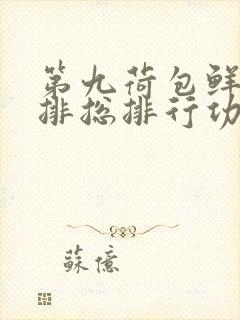 第九荷包鲜
排总排行功
蘇億